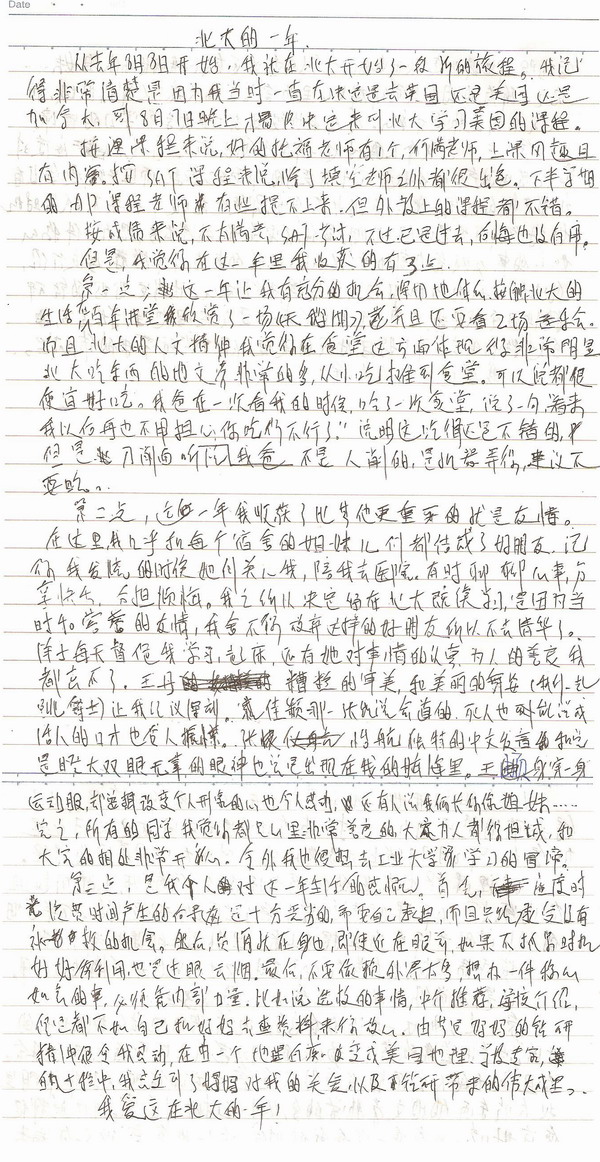 Date
北大的一年
从去年8月8日开始,我就在北大开始了一段新的旅程。我记
得非常清楚是因为我当时一直在决定是去英国还是美国还是
加拿大,到8月7日晚上才最后决定来到北大学习美国的课程。
按课程来说,好的托福老师有1个,何满老师,上课风趣且
有内容。按SAT课程来说,除了填空老师之外都很出色。下半学期
的AP课程老师有些提不上来,但外教上的课程都不错。
按成绩来说,不太满意,SAT考试,不过已是过去,后悔也没有用。
但是,我觉得在这一年里我收获的有3点。
第一点,这一年让我有充分的机会,得力地体会接触北大的
生活,在百年讲堂欣赏了一场《天鹅湖》并且还要看2场音乐会。
而且北大的人文精神我觉得在食堂这方面体现得非常明显
北大吃东西的地方非常的多,从小吃摊到食堂。可以说都很
便宜好吃。我爸在一次看我的时候,吃了一次食堂,说了一句"看来
我以后再也不用担心你吃得不行了。"说明这吃得还是不错的,
但是刀削面听我爸不是人削的,是机器弄得,建议不
要吃。
第二点,这一年我收获了比其他更重要的就是友情。
在这里我几乎和每个宿舍的姐妹儿们都结成了好朋友,记
得我发烧的时候她们关心我,陪我去医院。有时聊聊心事,分
享快乐,分担烦恼。我之所以决定留在北大继续学习,是因为当
时和营营的友情,我舍不得放弃这样的好朋友所以不去清华了。
除了每天督促我学习,起床,还有她对事情的认真,为人的善良我
都忘不了。王丹糟糕的审美,和美丽的舞姿(我们一起
跳爵士)让我记忆深刻。戴佳颖那一张能说会道的,死人也能说成
活人的口才也令人振惊。张将航独特的中文发音和总
是睁大双眼无辜的眼神也总是出现在我的脑海里。王身穿一身
运动服,却想改变个人形象的心也令人感动,还有从没我们大的徐姐妹……
完之,所有的同学我觉得都是心里非常善良的,大家为人都很坦诚,和
大家的相处非常开心。令外我也很想去工业大学学习的冒烯。
第三点,是我个人对这一年生活的感慨。首先,
浪费时间产生的后果是十分严重的,需要自己承担,而且只能承受没有
补救的机会。然后,资源就在身边,即使近在眼前,如果不抓紧时机
好好利用,也是过眼云烟。最后,不要依赖外界太多,想办一件称心
如意的事,必须靠内部力量。比如说选校的事情,中介推荐,学校介绍,
但这都不如自己和妈妈去查资料来得放心。由其是妈妈的钻研
精神很令我感动,在由一个地理白痴变成美国地理,学校专家,
的过程中,我感受到了妈妈对我的关爱以及不钻研带来的伟大成果。
我爱这在北大的一年!